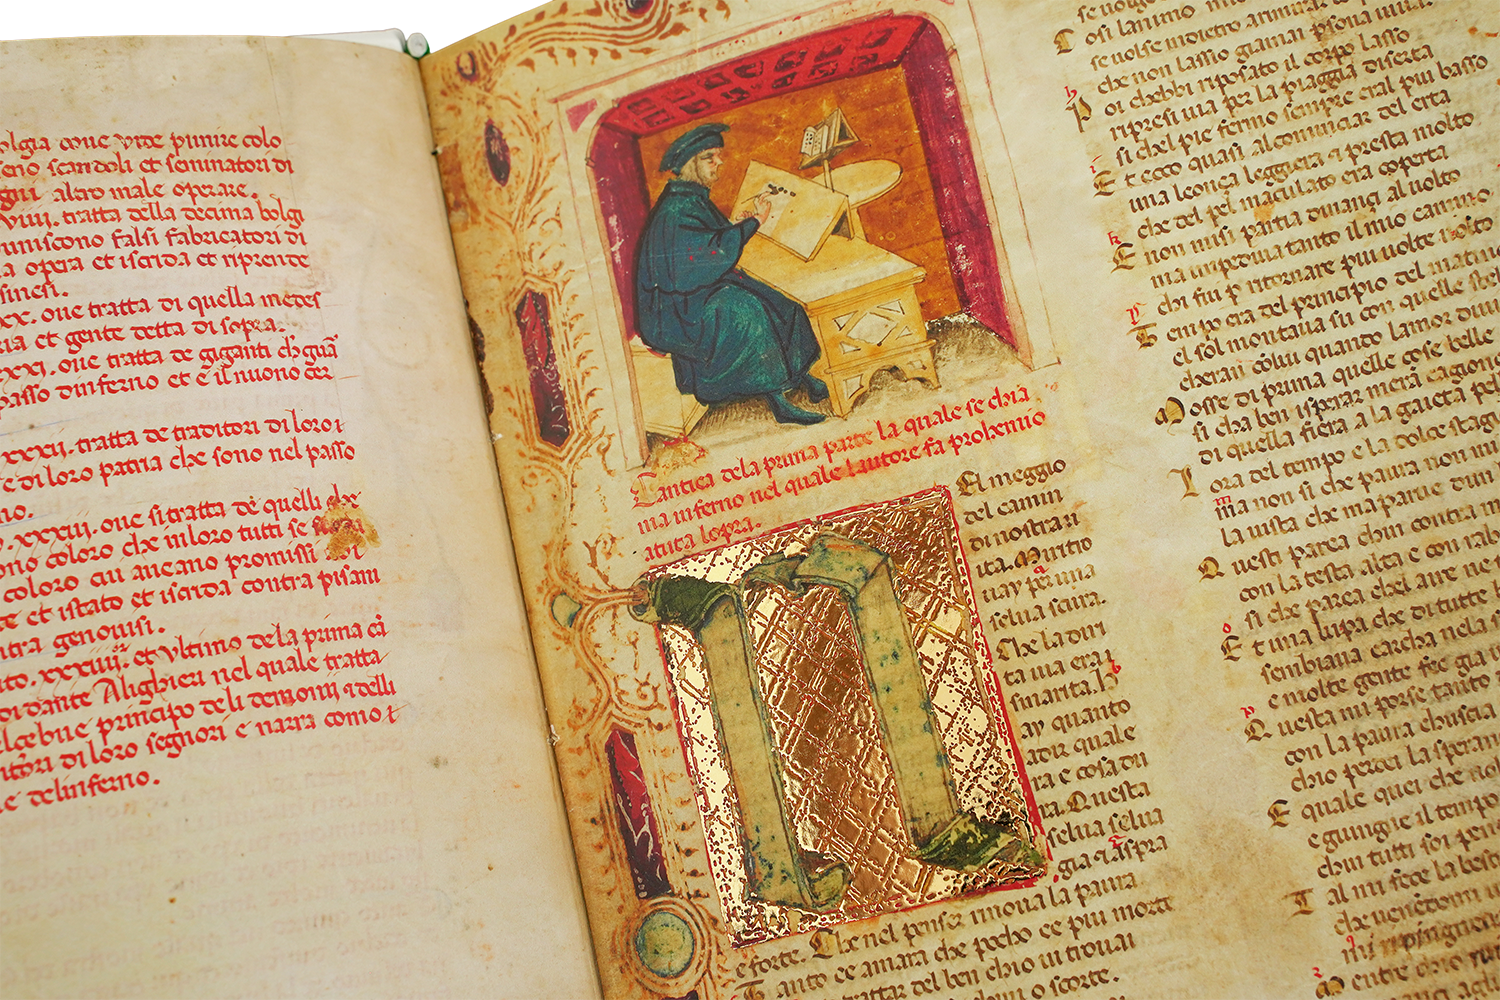 olgia oue vide punire colo
seno scandoli et seminatori di
gni altro male operare.
viiii. tratta della decima bolgi
uniscono falsi fabricatori di
a opera et iscrida et riprende
sinesi.
xx. oue tratta di quella medes
ria et gente detta di sopra.
xxxi. oue tratta de giganti
passo dinferno et e il nuono cer
xxxii. tratta de traditori di loro
e di loro patria che sono nel passo
no.
xxxiii. oue si tratta de quelli che
ono coloro che inloro tutti se
coloro cui aueano promissi
te et istato et iscrida contra pisani
ntra genouisi.
to. xxxiiii. et vltimo dela prima
di dante Alighieri nel quale tratta
lcebue principo deli demonij i delli
ntori di loro segnori e narra como
e delinferno.
Cantica dela prima parte la quale se chia
ma inferno nel quale lautore fa prohemio
atuta lopra.
N
El meggio
del camin
di nostra ui
ita. Mi ritro
uay per una
selua scura.
Che la diri
ta uia era i
smarita.
ay quanto
adir quale
ra e cosa du
ra. Questa
selua selua
gia et aspra
e forte. Che nel penser rinoua la paura
Tanto ee amara che pocho ee piu morte
trattar del ben chio ui trouai
chio ui o scorte.
Cosi lanimo
se uolse indietro amirar
che non lasso giamai psona uiua
Poi chebbi riposato il corpo lasso
ripresi uia per la piaggia diserta
si chel pie fermo sempre eral piu basso
Et ecco quasi al cominciar del erta
una leonça leggiera i presta molto
che del pel maculato era coperta
E non misi partia dinançi al uolto
ma impedina tanto il mio camino
chi fui p ritornare piu uolte uolto
Tempo era del principio del matino
el sol montaua su con quelle stel
cheran colui quando lamor diui
Mosse di prima quelle cose belle
si cha ben isperar mera cagione
di quella fiera a la gaieta pel
Lora del tempo e la dolce stagio
ma non si che paura non mi
la uista che ma parue dun
Questi parea chin contra m
con la testa alta e con rab
si che parea chel aire ne t
Et una lupa che di tutte
sembiaua carcha nela s
e molte gente fee gia ui
Questa mi porse tanto
con la paura chuscia
chio perdei la speran
E quale quei che uol
e giungie il tempo
chin tutti soi pens
Tal mi fece la besti
che uenendomi
mi ripingea
Mentre chio